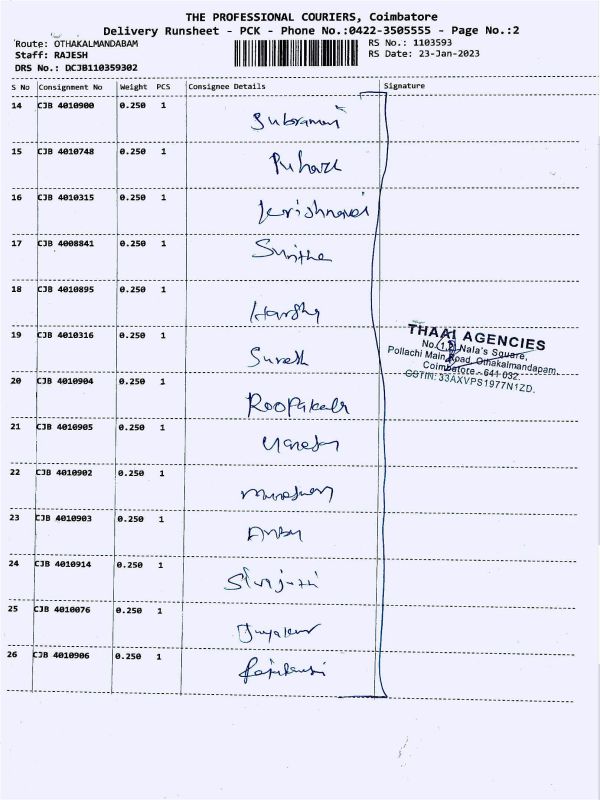 THE PROFESSIONAL COURIERS, Coimbatore
Delivery Runsheet - PCK - Phone No.:0422-3505555 - Page No.:2
Route: OTHAKALMANDABAM RS No.: 1103593
Staff: RAJESH RS Date: 23-Jan-2023
DRS No.: DCJB110359302
S No Consignment No Weight PCS Consignee Details Signature
14 CJB 4010900 0.250 1
15 CJB 4010748 0.250 1
16 CJB 4010315 0.250 1
17 CJB 4008841 0.250 1
18 CJB 4010895 0.250 1
19 CJB 4010316 0.250 1 Suresh
THAAI AGENCIES
No. Nala's Square,
Pollachi Main Road, Othakalmandapam,
Coimbatore - 641 032.
GSTIN: 33AXVPS1977N1ZD.
20 CJB 4010904 0.250 1
21 CJB 4010905 0.250 1
22 CJB 4010902 0.250 1
23 CJB 4010903 0.250 1
24 CJB 4010914 0.250 1
25 CJB 4010076 0.250 1
26 CJB 4010906 0.250 1